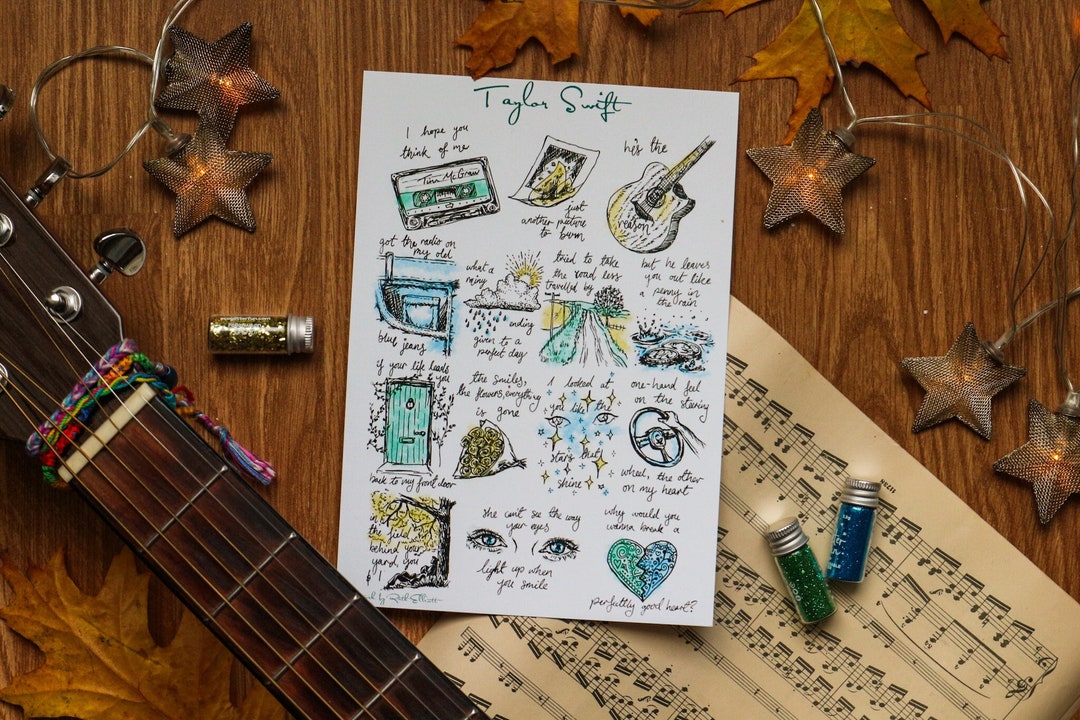 Taylor Swift
I hope you
think of me
Tim McGraw
just
another picture
to burn
he's the
reason
got the radio on
my old
blue jeans
what a
rainy
ending
given to a
perfect day
tried to take
the road less
travelled by
but he leaves
you out like
a penny in
the rain
if your life leads
you
back to my front door
the smiles,
the flowers, everything
is gone
I looked at
you like the
stars that
shine
one-hand feel
on the steering
wheel, the other
on my heart
in the field
behind your
yard, you
&
she can't see the way
your eyes
light up when
you smile
why would you
wanna break a
perfectly good heart?
by Ruth Elliott